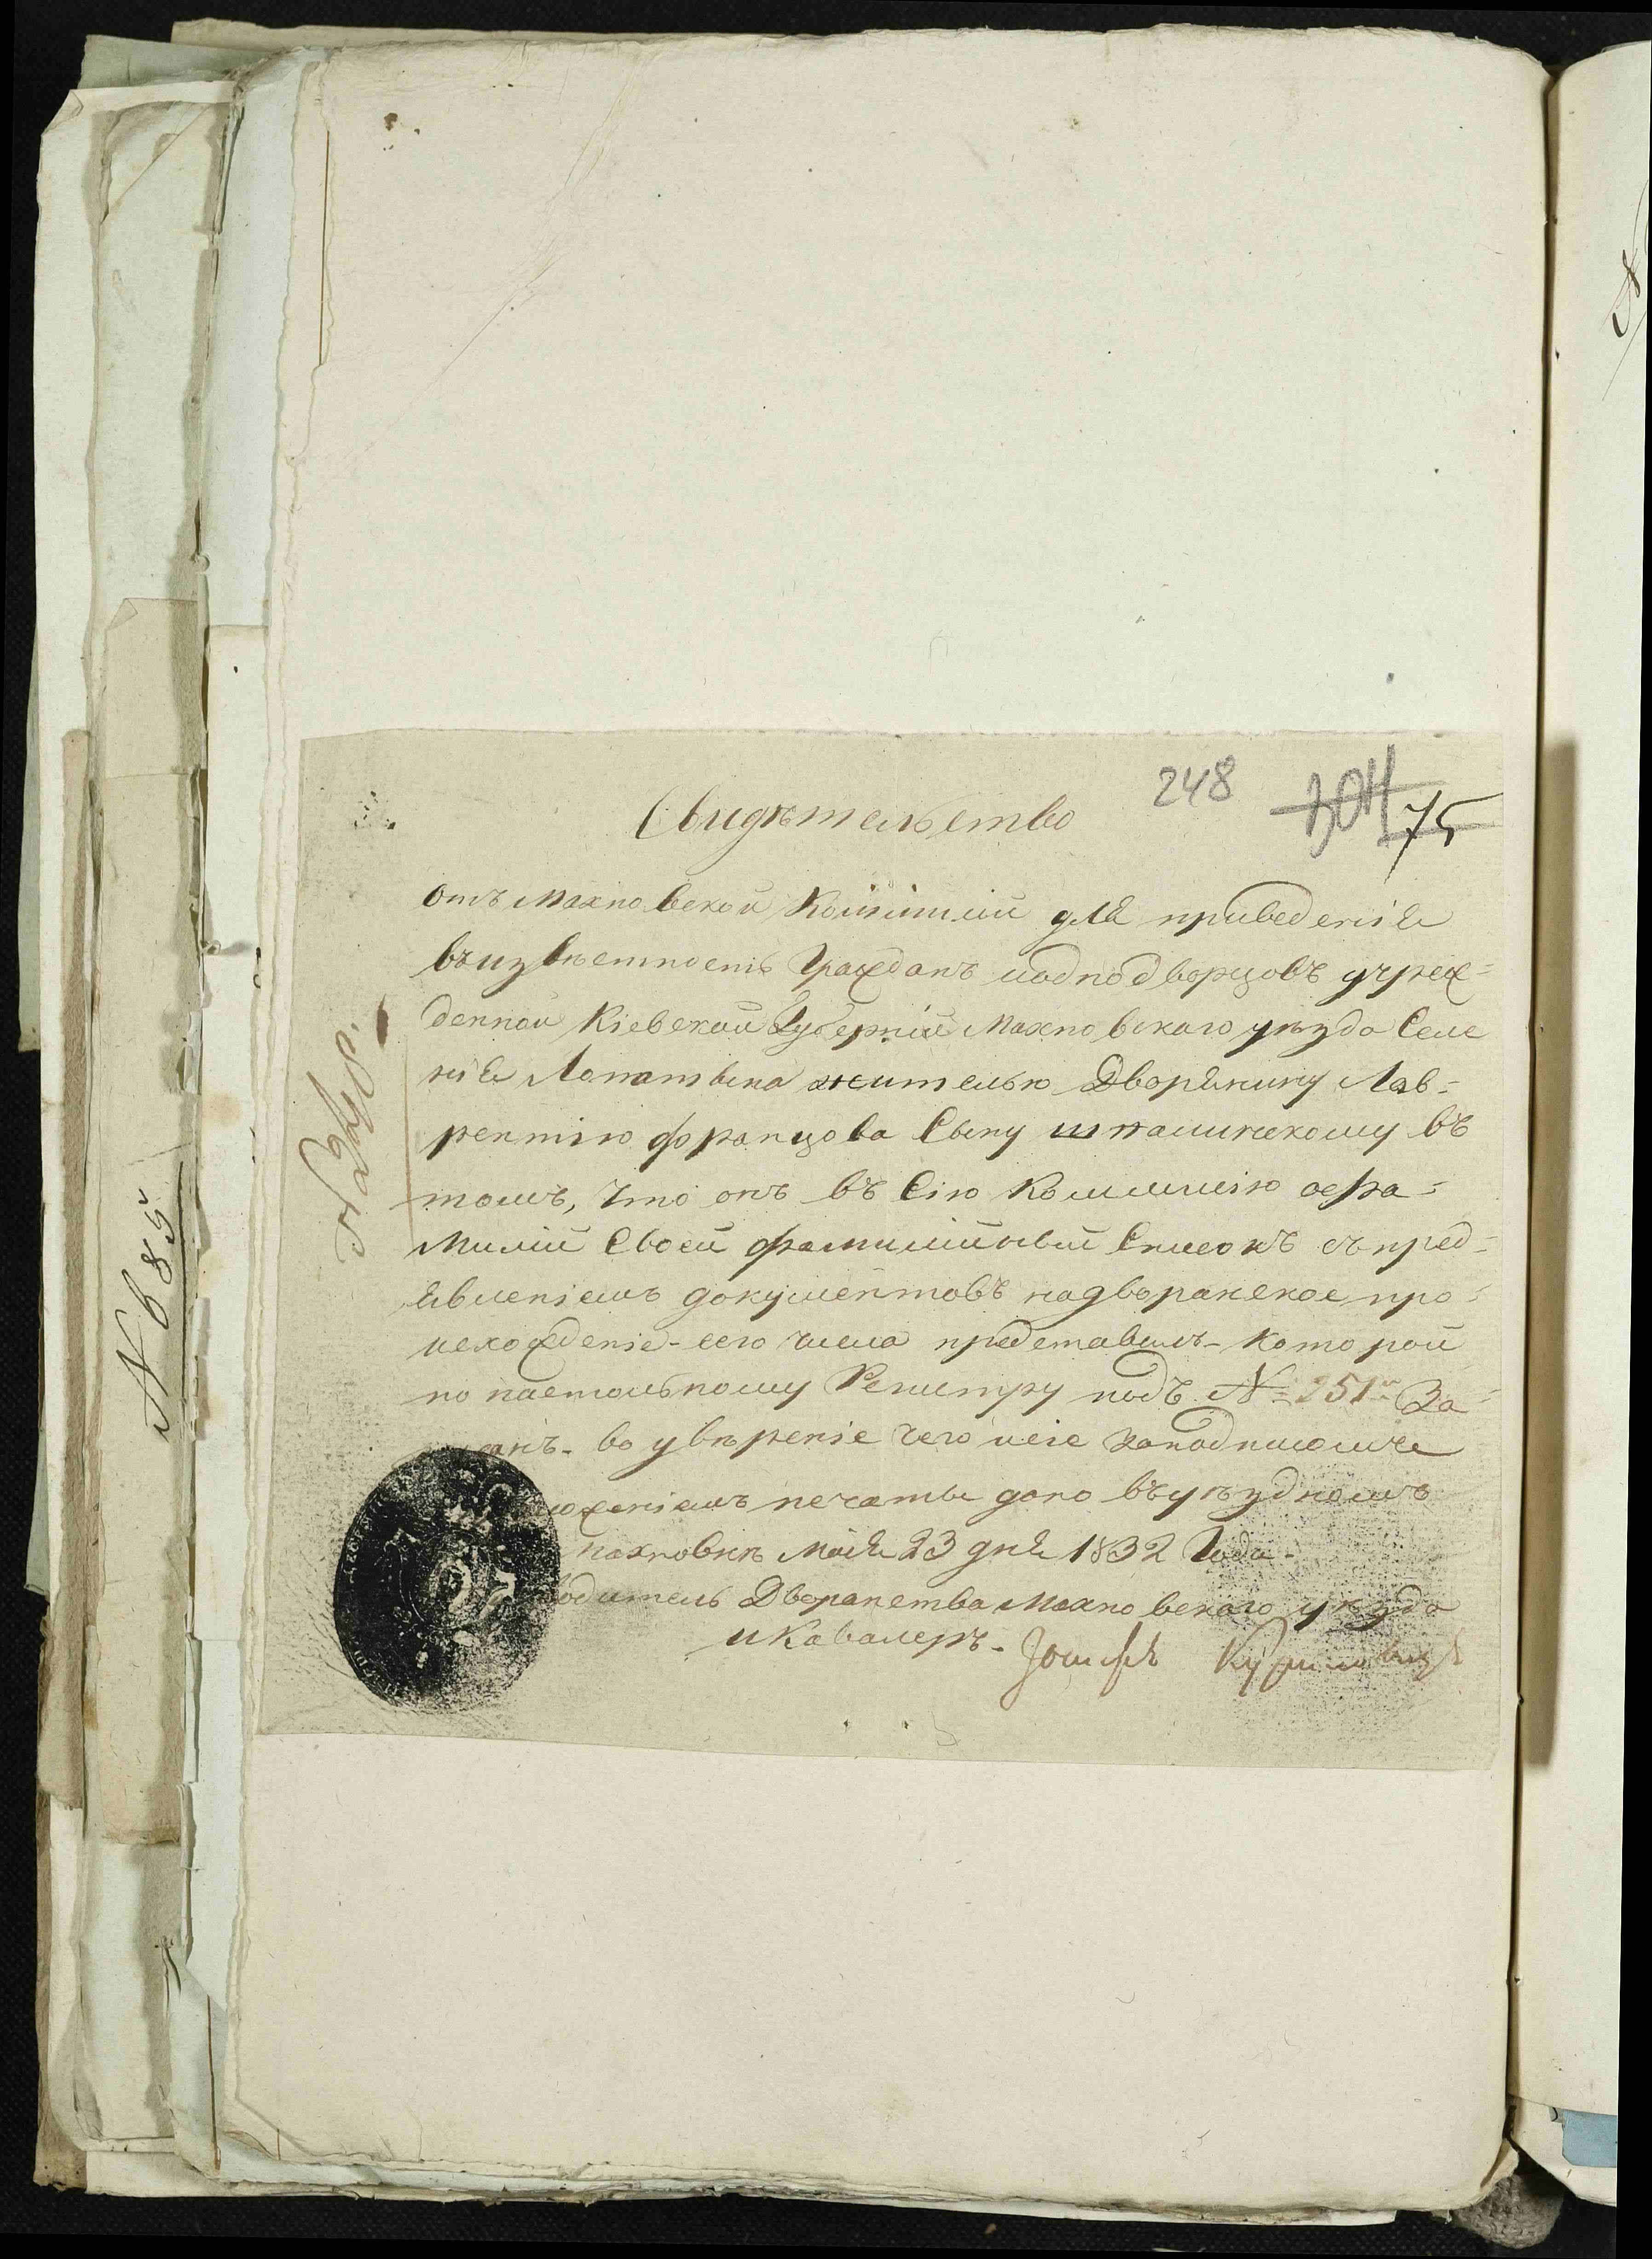 248
75
Свидѣтельство
отъ Махновской Коммисіи для приведенія
въ извѣстность Граждан и однодворцовъ учреж=
денной Кіевской Губерніи Махновскаго уѣзда Селе
нія Лопатина жителю Дворянину Лав=
рентію Францова Сыну въ
томъ, что онъ въ Сію Коммисію о фа=
миліи Своей фамилійный Списокъ съ пред=
явленіемъ документовъ на дворанское про=
исхожденіе - сего числа представилъ - которой
по настольному Регистру подъ № 251м За=
санъ - во увѣреніе чего сіе за подписомъ
ложеніемъ печати дано въ уѣздномъ
Махновкѣ Маія 23 дня 1832 Года -
водитель Дворанства Махновскаго уѣзда
и Кавалеръ -
№ 685й